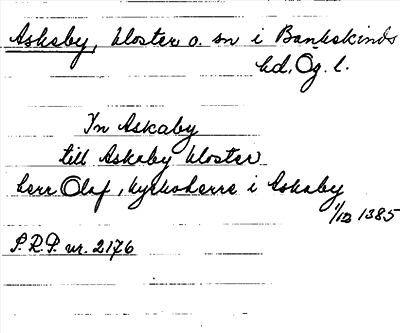 Askeby, kloster o. sn i Bankekinds
hd, Ög. l.
In Askaby
till Askaby kloster
herr Olaf, kyrkoherre i Askaby
1/12 1385
P.R.P. nr. 2176